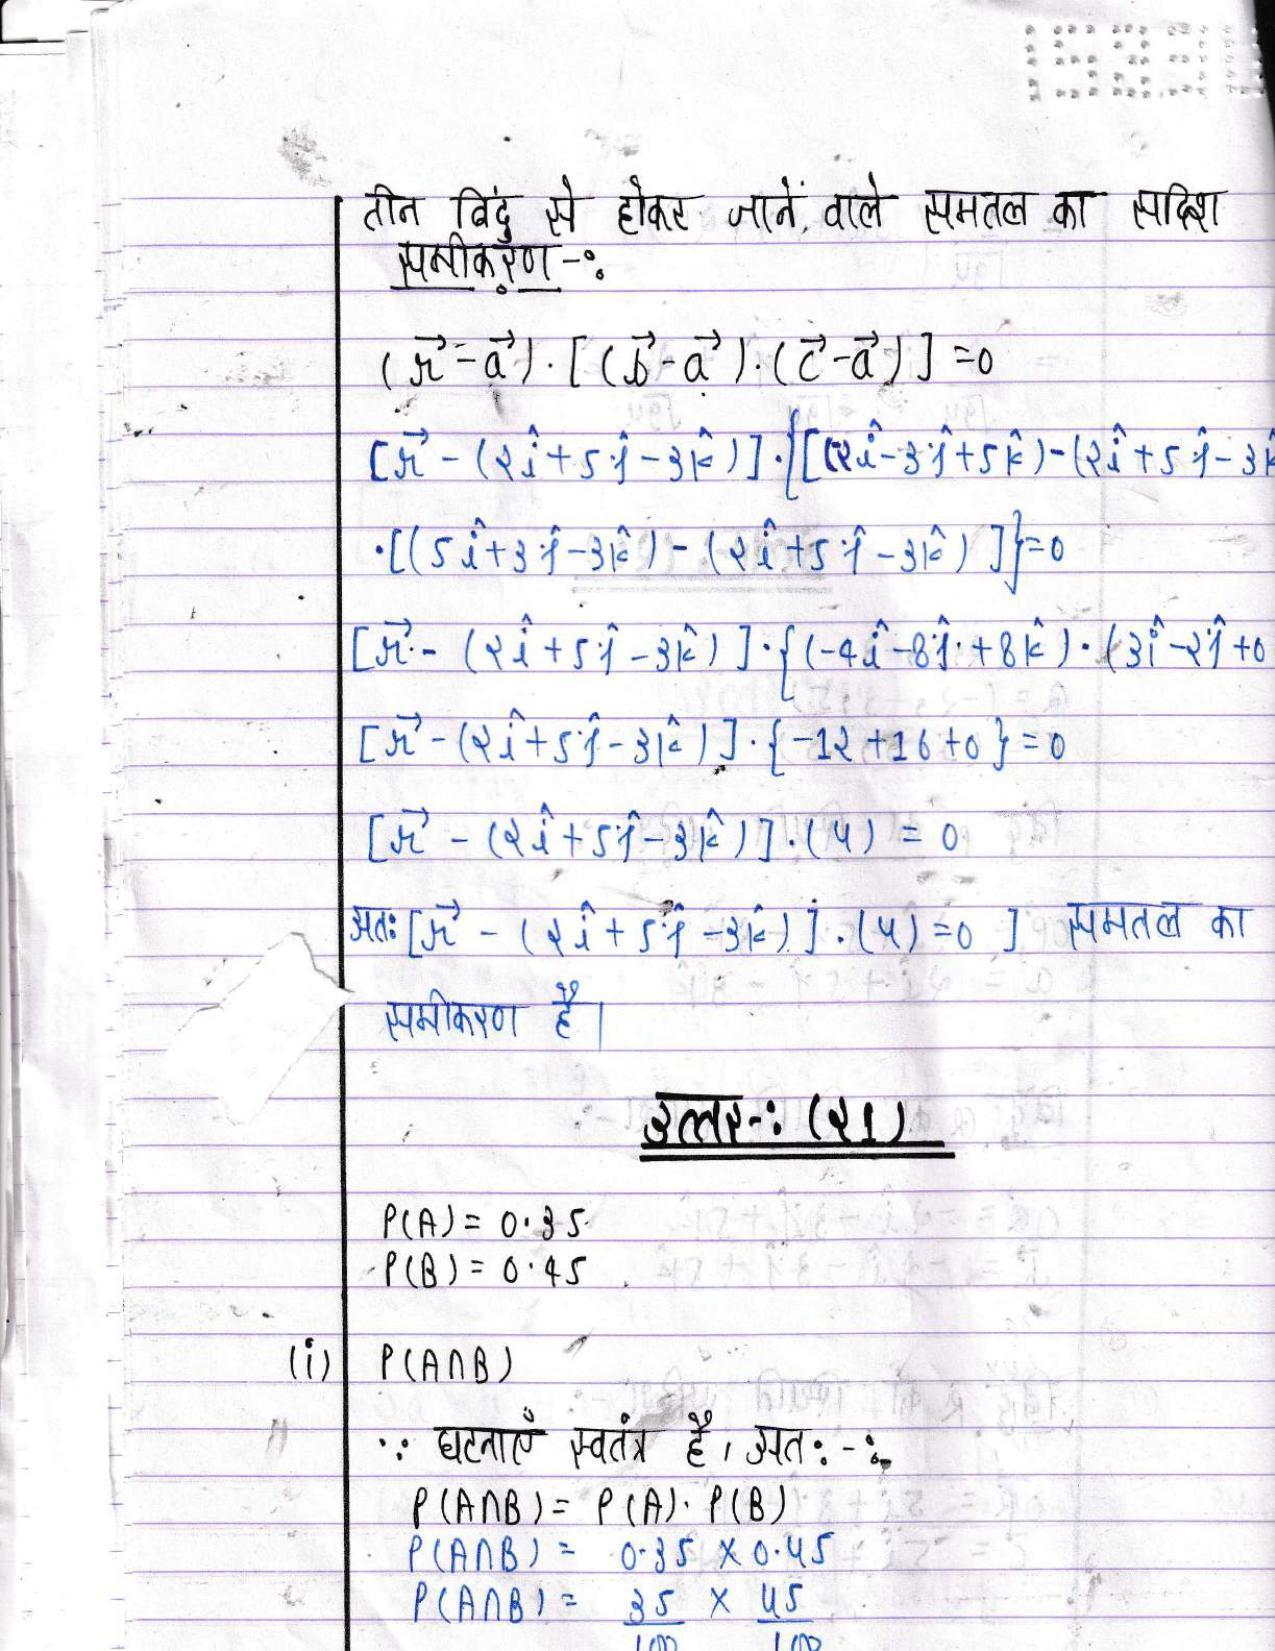 तीन विंदु से होकर जानें वाले समतल का सदिश
समीकरण -:
(r⃗ - a⃗) . [(b⃗ - a⃗) . (c⃗ - a⃗)] = 0
[r⃗ - (2î + 5ĵ - 3k̂)] . {[(2î - 3ĵ + 5k̂) - (2î + 5ĵ - 3k̂
. [(5î + 3ĵ - 3k̂) - (2î + 5ĵ - 3k̂)]} = 0
[r⃗ - (2î + 5ĵ - 3k̂)] . {(-4î - 8ĵ + 8k̂) . (3î - 2ĵ + 0
[r⃗ - (2î + 5ĵ - 3k̂)] . {-12 + 16 + 0} = 0
[r⃗ - (2î + 5ĵ - 3k̂)] . (4) = 0
अतः [r⃗ - (2î + 5ĵ - 3k̂)] . (4) = 0 ] समतल का
समीकरण है।
उत्तर -: (21)
P(A) = 0.35
P(B) = 0.45
(i) P(A∩B)
∵ घटनाएँ स्वतंत्र है, अतः -:
P(A∩B) = P(A) . P(B)
P(A∩B) = 0.35 × 0.45
P(A∩B) = 35/100 × 45/100